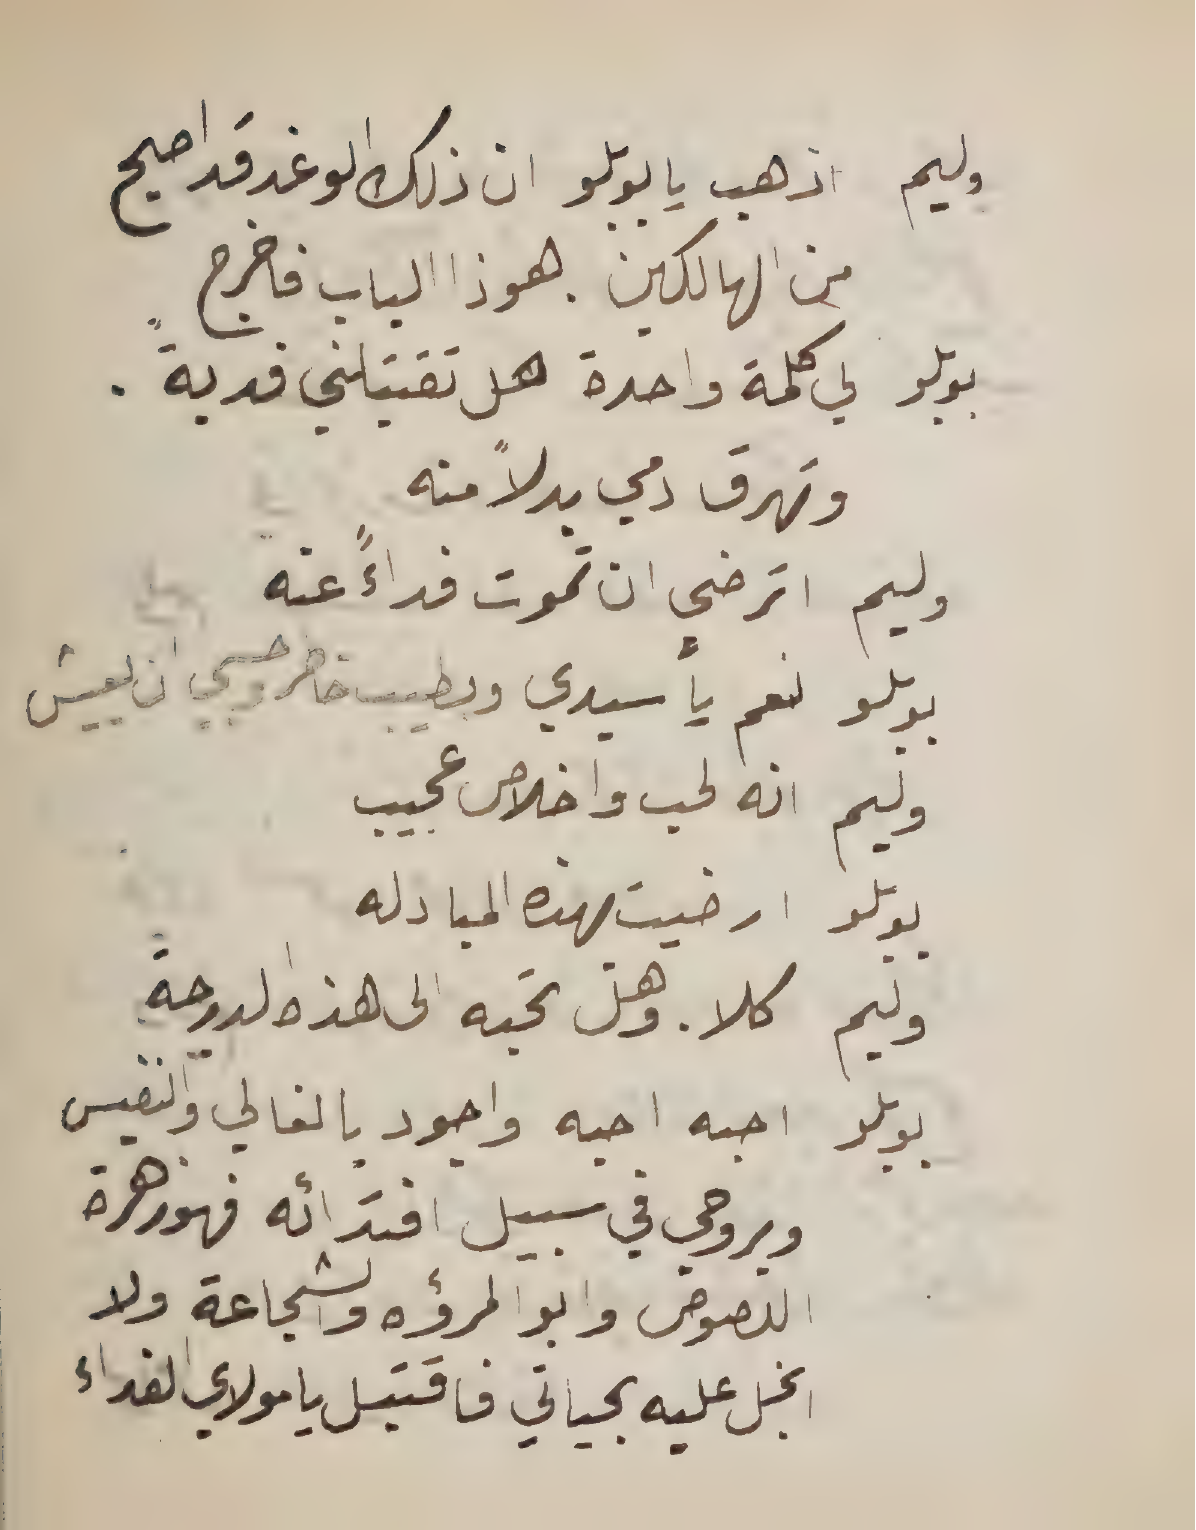 وليم اذهب يا بوبلو ان ذلك الوغد قد اصبح
من الهالكين . هوذا الباب فاخرج
بوبلو لي كلمة واحدة هل تقتبلني فديةً .
وتهرق دمي بدلاً منه
وليم اترضى ان تموت فداءً عنه
بوبلو نعم يا سيدي وبطيب خاطر وحسبي ان يعيش
وليم انه لحب واخلاص عجيب
بوبلو ارضيت بهذه المبادله
وليم كلا . وهل تحبه الى هذه الدرجة
بوبلو احبه احبه واجود بالغالي والنفيس
وبروحي في سبيل افتدائه فهو زهرة
اللصوص وابو المرؤه والشجاعة ولا
ابخل عليه بحياتي فاقتبل يا مولاي الفداء